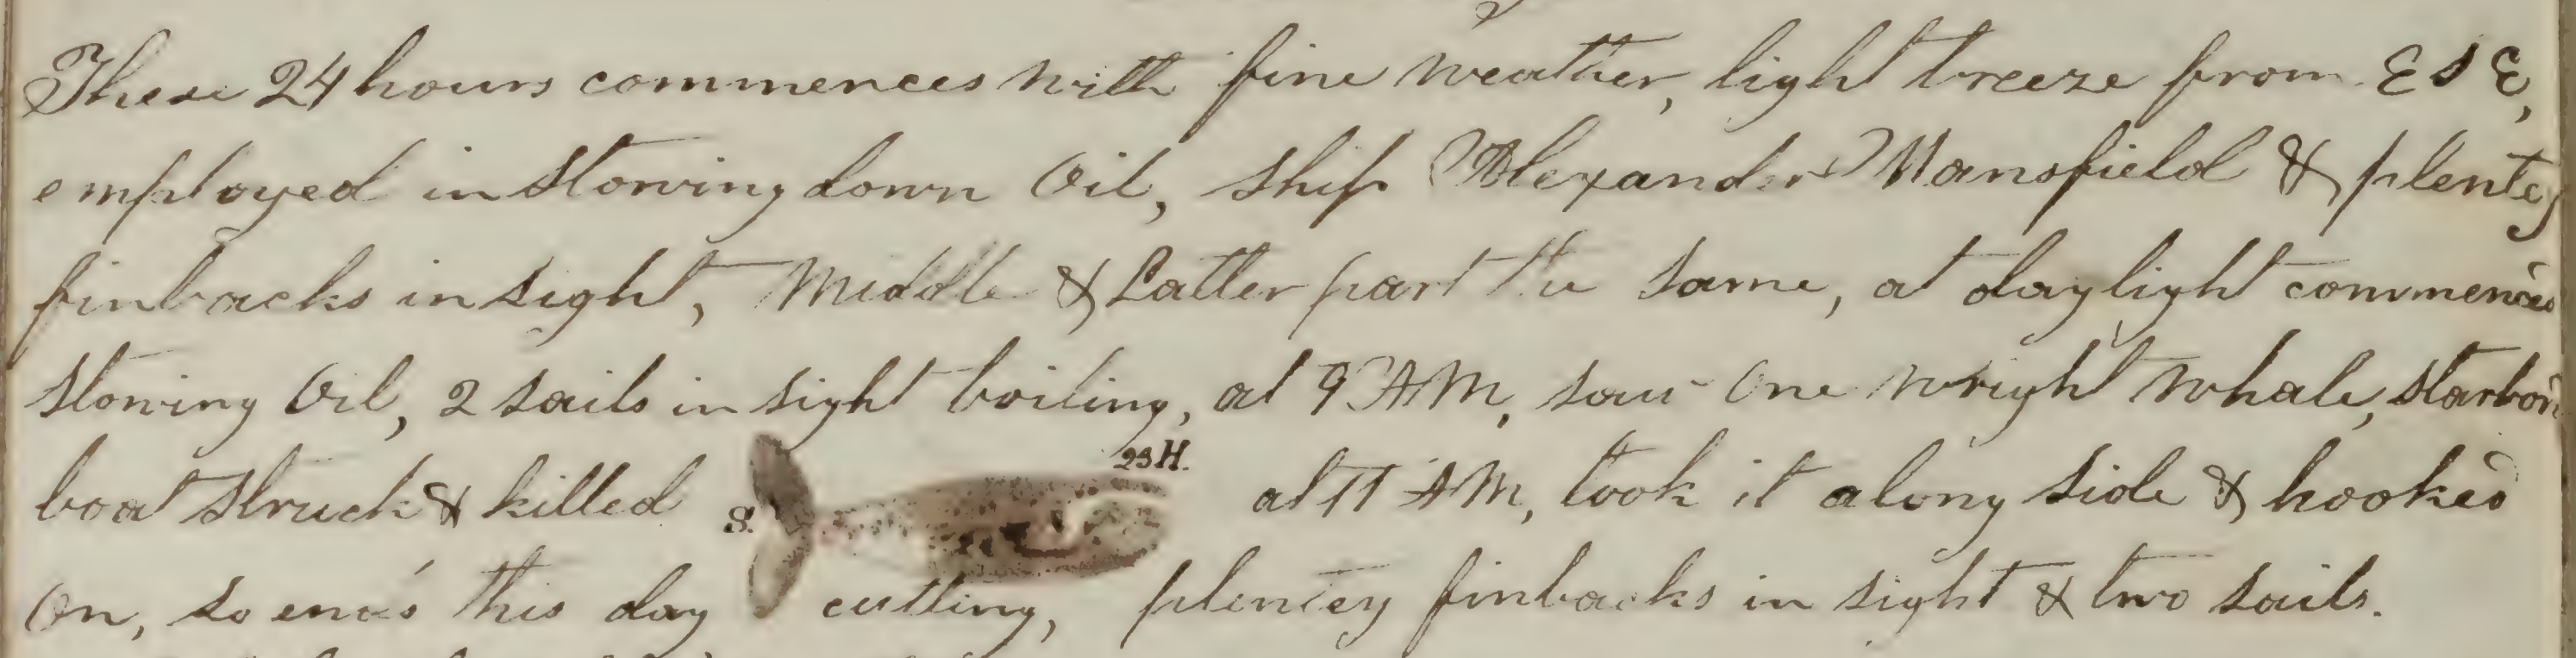 These 24 hours commences with fine weather, light breeze from E S E,
employed in stowing down Oil, ship Alexander Mansfield & plentey
finbacks in sight, Middle & Latter part the same, at daylight commences
stowing Oil, 2 sails in sight boiling, at 9 AM, saw One wright whale, starbord
boat struck & killed S. 23 H. at 11 AM, took it along side & hooked
On, so ends this day cutting, plentey finbacks in sight & two sails.